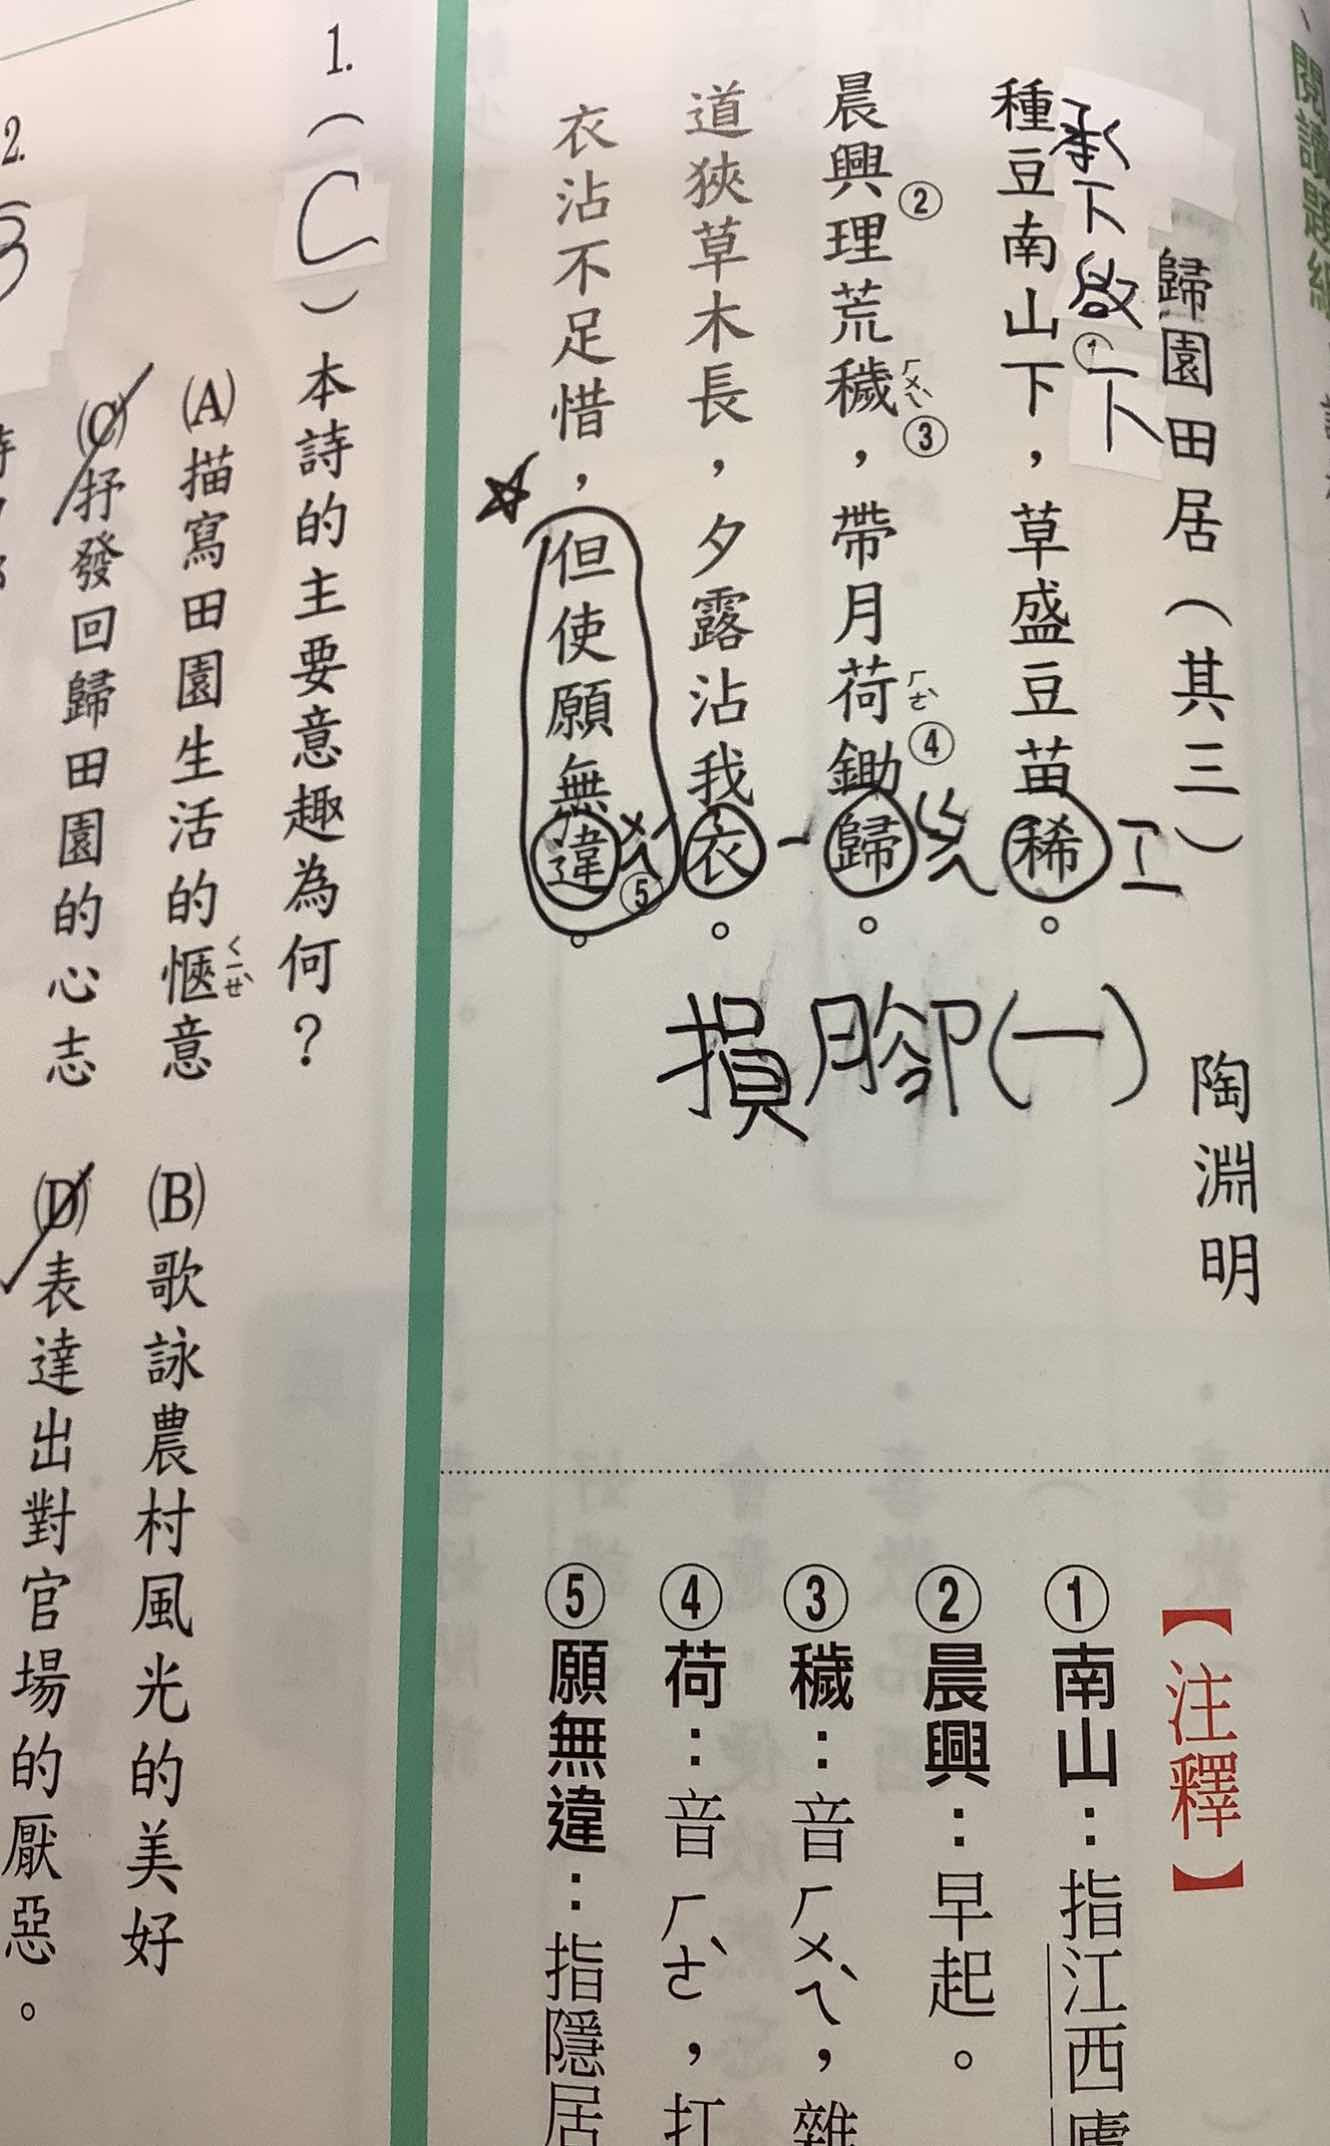 閱讀題組
歸園田居（其三） 陶淵明
承下啟下
種豆南山下①，草盛豆苗稀。
ㄒㄧ
晨興②理荒穢ㄏㄨㄟˋ③，帶月荷ㄏㄜˋ④鋤歸。
ㄍㄨㄟ
道狹草木長，夕露沾我衣。
ㄧ
衣沾不足惜，但使願無違⑤。
ㄨㄟˊ
損腳(一)
【注釋】
①南山：指江西廬
②晨興：早起。
③穢：音ㄏㄨㄟˋ，雜
④荷：音ㄏㄜˋ，打
⑤願無違：指隱居
1.（C）本詩的主要意趣為何？
(A)描寫田園生活的愜ㄑㄧㄝˋ意 (B)歌詠農村風光的美好
(C)抒發回歸田園的心志 (D)表達出對官場的厭惡。
2.（B